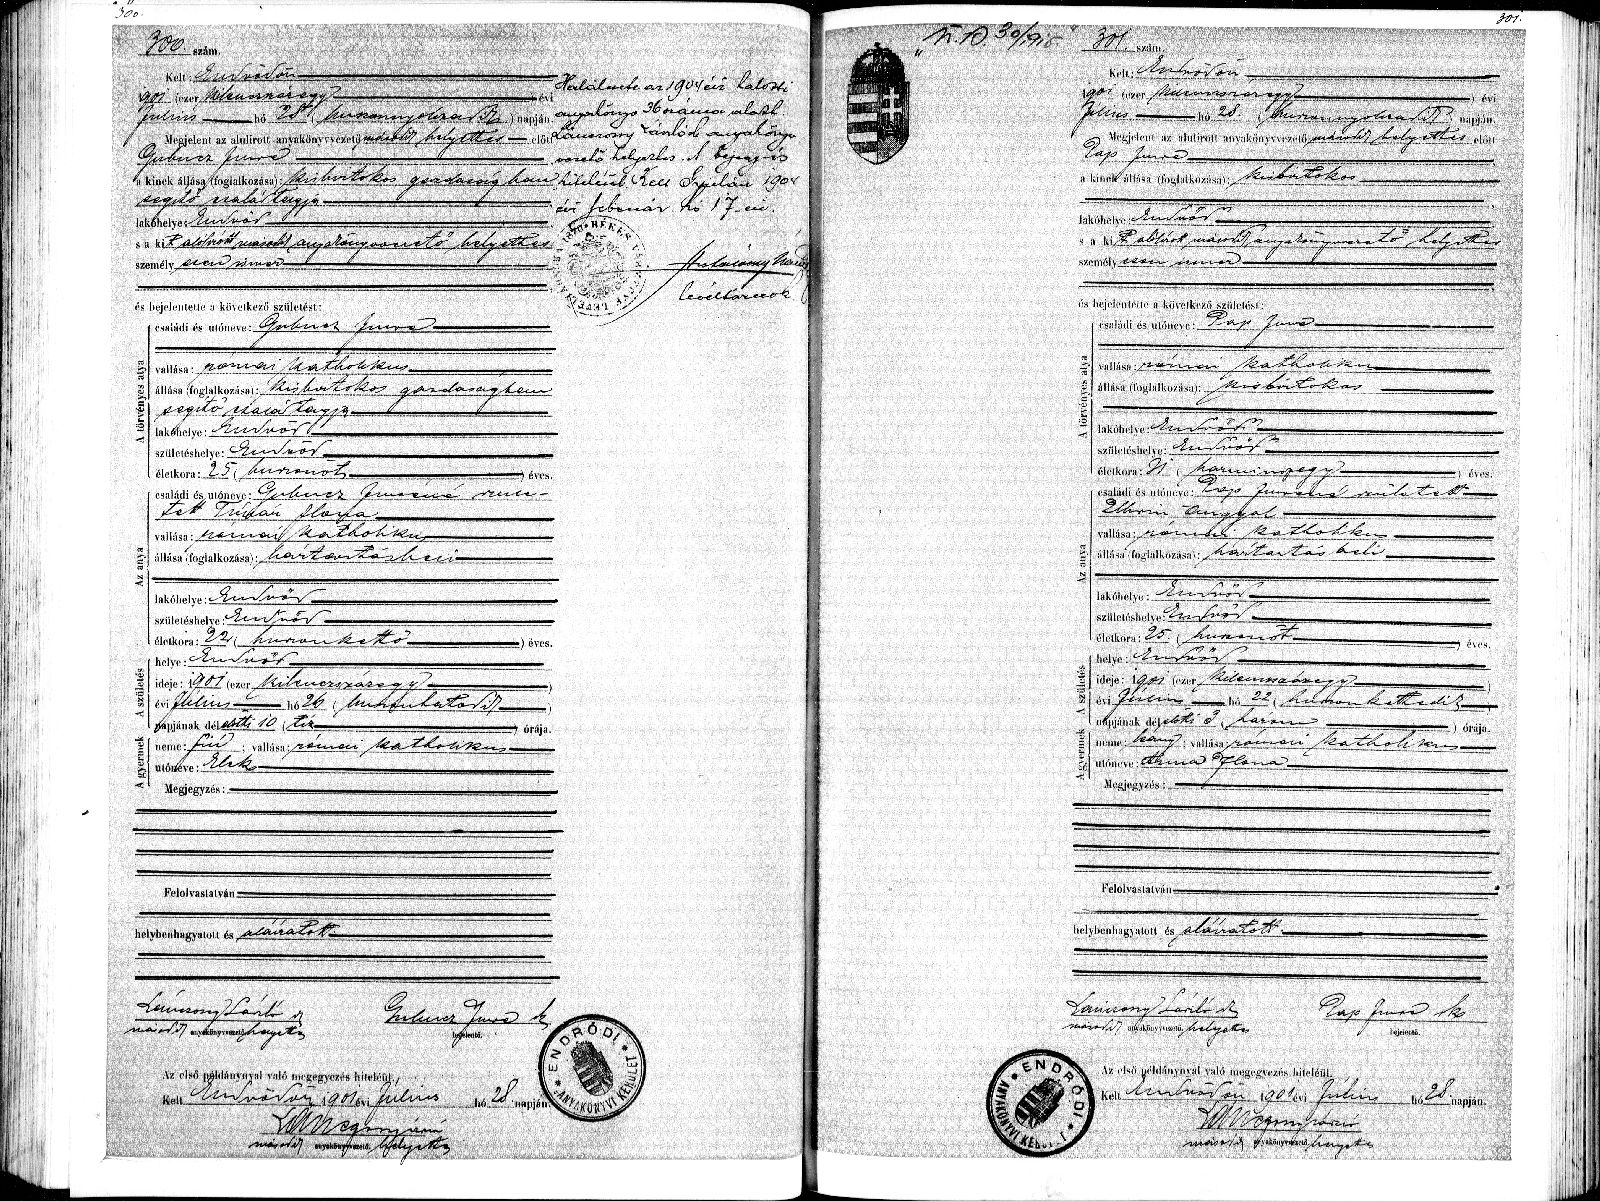 300.
300. szám.
Kelt: Endrődön
1901 (ezer kilenczszázegy) évi
Július hó 28 (huszonnyolczadik) napján
Megjelent az alulirott anyakönyvvezető másodi helyettes előtt
Gubucz Imre
a kinek állása (foglalkozása): kisbirtokos gazdaságban
segítő családtagja
lakóhelye: Endrőd
s a kit alulirott másodi anyakönyvvezető helyettes
személyesen ismer
és bejelentette a következő születést:
A törvényes atya
családi és utóneve: Gubucz Imre
vallása: római katholikus
állása (foglalkozása): kisbirtokos gazdaságban
segítő családtagja
lakóhelye: Endrőd
születéshelye: Endrőd
életkora: 25 (huszonöt) éves.
Az anya
családi és utóneve: Gubucz Imréné szüle-
tett
vallása: római katholikus
állása (foglalkozása): háztartásbeli
lakóhelye: Endrőd
születéshelye: Endrőd
életkora: 22 (huszonkettő) éves.
A születés
helye: Endrőd
ideje: 1901 (ezer kilenczszázegy)
évi Július hó 26 (huszonhatodik)
napjának délelőtti 10 (tíz) órája.
A gyermek
neme: fiú; vallása: római katholikus
utóneve: Elek
Megjegyzés:
Felolvastatván
helybenhagyatott és aláíratott
László
másodi anyakönyvvezető helyettes
Gubucz Imre sk
bejelentő.
Az első példánynyal való megegyezés hiteléül.
Kelt Endrődön 1901 évi Július hó 28 napján.
másodi anyakönyvvezető helyettes
ENDRŐDI
ANYAKÖNYVI KERÜLET
Meghalt az 1904 évi halotti
anyakönyv 36 száma alatt
László anyakönyv
vezető helyettes. A bejegyzés
hiteléül. Kelt Gyulán 1904
évi február hó 17-én.
levéltárnok
BÉKÉS
301.
301. szám.
Kelt: Endrődön
1901 (ezer kilenczszázegy) évi
Július hó 28. (huszonnyolczadik) napján.
Megjelent az alulirott anyakönyvvezető másodi helyettes előtt
Pap Imre
a kinek állása (foglalkozása): kisbirtokos
lakóhelye: Endrőd
s a kit alulirott másodi anyakönyvvezető helyettes
személyesen ismer
és bejelentette a következő születést:
A törvényes atya
családi és utóneve: Pap Imre
vallása: római katholikus
állása (foglalkozása): kisbirtokos
lakóhelye: Endrőd
születéshelye: Endrőd
életkora: 31 (harminczegy) éves.
Az anya
családi és utóneve: Pap Imréné született
vallása: római katholikus
állása (foglalkozása): háztartásbeli
lakóhelye: Endrőd
születéshelye: Endrőd
életkora: 25 (huszonöt) éves.
A születés
helye: Endrőd
ideje: 1901 (ezer kilenczszázegy)
évi Július hó 22 (huszonkettedik)
napjának délelőtti 3 (három) órája.
A gyermek
neme: leány; vallása: római katholikus
utóneve: Anna Ilona
Megjegyzés:
Felolvastatván
helybenhagyatott és aláíratott
László
másodi anyakönyvvezető helyettes
Pap Imre sk
bejelentő.
Az első példánynyal való megegyezés hiteléül.
Kelt Endrődön 1901 évi Július hó 28 napján.
másodi anyakönyvvezető helyettes
ENDRŐDI
ANYAKÖNYVI KERÜLET